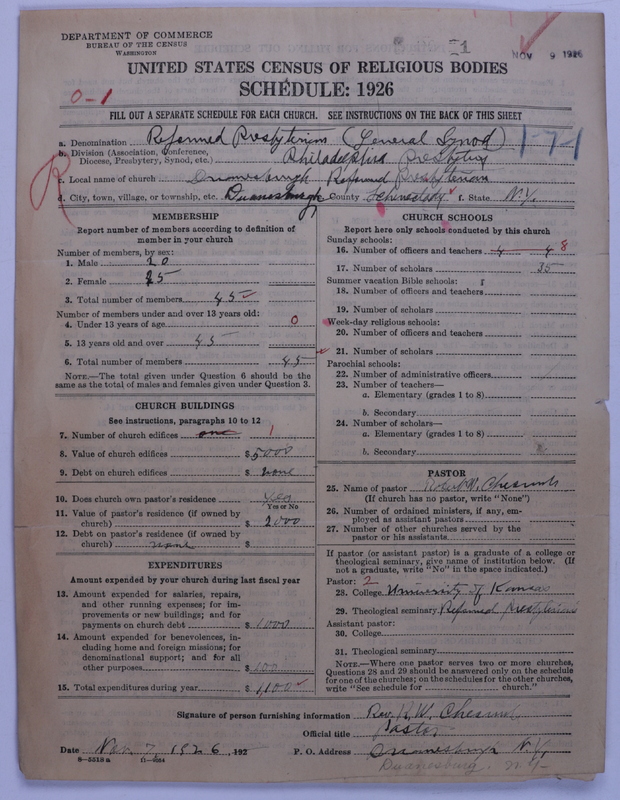 DEPARTMENT OF COMMERCE
BUREAU OF THE CENSUS
WASHINGTON
1
NOV 9 1926
UNITED STATES CENSUS OF RELIGIOUS BODIES
SCHEDULE: 1926
0-1
FILL OUT A SEPARATE SCHEDULE FOR EACH CHURCH. SEE INSTRUCTIONS ON THE BACK OF THIS SHEET
a. Denomination Reformed Presbyterian (General Synod)
1-7-1
b. Division (Association, Conference, Diocese, Presbytery, Synod, etc.) Philadelphia Presbytery
R
c. Local name of church Duanesburgh Reformed Presbyterian
d. City, town, village, or township, etc. Duanesburgh County Schenectady f. State N.Y.
MEMBERSHIP
Report number of members according to definition of member in your church
Number of members, by sex:
1. Male 20
2. Female 25
3. Total number of members 45
Number of members under and over 13 years old:
4. Under 13 years of age 0
5. 13 years old and over 45
6. Total number of members 45
NOTE.—The total given under Question 6 should be the
same as the total of males and females given under Question 3.
CHURCH BUILDINGS
See instructions, paragraphs 10 to 12
7. Number of church edifices one 1
8. Value of church edifices $5000
9. Debt on church edifices $ none
10. Does church own pastor's residence Yes
Yes or No
11. Value of pastor's residence (if owned by
church) $ 2000
12. Debt on pastor's residence (if owned by
church) none $
EXPENDITURES
Amount expended by your church during last fiscal year
13. Amount expended for salaries, repairs,
and other running expenses; for im-
provements or new buildings; and for
payments on church debt $ 1000
14. Amount expended for benevolences, in-
cluding home and foreign missions; for
denominational support; and for all
other purposes $ 100
15. Total expenditures during year $ 1,100
CHURCH SCHOOLS
Report here only schools conducted by this church
Sunday schools:
16. Number of officers and teachers 4 4 8
17. Number of scholars 35
Summer vacation Bible schools:
18. Number of officers and teachers
19. Number of scholars
Week-day religious schools:
20. Number of officers and teachers
21. Number of scholars
Parochial schools:
22. Number of administrative officers
23. Number of teachers—
a. Elementary (grades 1 to 8)
b. Secondary
24. Number of scholars—
a. Elementary (grades 1 to 8)
b. Secondary
PASTOR
25. Name of pastor
(If church has no pastor, write "None")
26. Number of ordained ministers, if any, em-
ployed as assistant pastors
27. Number of other churches served by the
pastor or his assistants
If pastor (or assistant pastor) is a graduate of a college or
theological seminary, give name of institution below. (If
not a graduate, write "No" in the space indicated.)
Pastor: 2
28. College University of Kansas
29. Theological seminary Reformed Presbyterian
Assistant pastor:
30. College
31. Theological seminary
NOTE.—Where one pastor serves two or more churches,
Questions 28 and 29 should be answered only on the schedule
for one of the churches; on the schedules for the other churches,
write "See schedule for church."
Signature of person furnishing information Rev. R. W. Chesnut
Official title Pastor
Date Nov. 7, 1926, 192 P. O. Address Duanesburgh N.Y.
8—5513 a 11—9554
Duanesburg. N.Y-